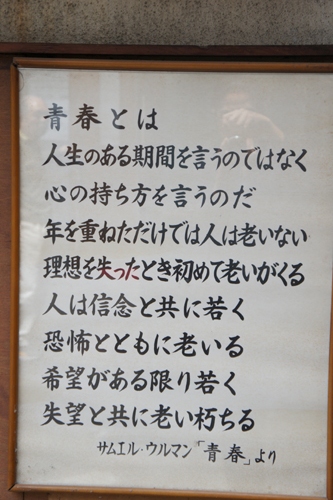 青春とは
人生のある期間を言うのではなく
心の持ち方を言うのだ
年を重ねただけでは人は老いない
理想を失ったとき初めて老いがくる
人は信念と共に若く
恐怖とともに老いる
希望がある限り若く
失望と共に老い朽ちる
サムエル・ウルマン「青春」より